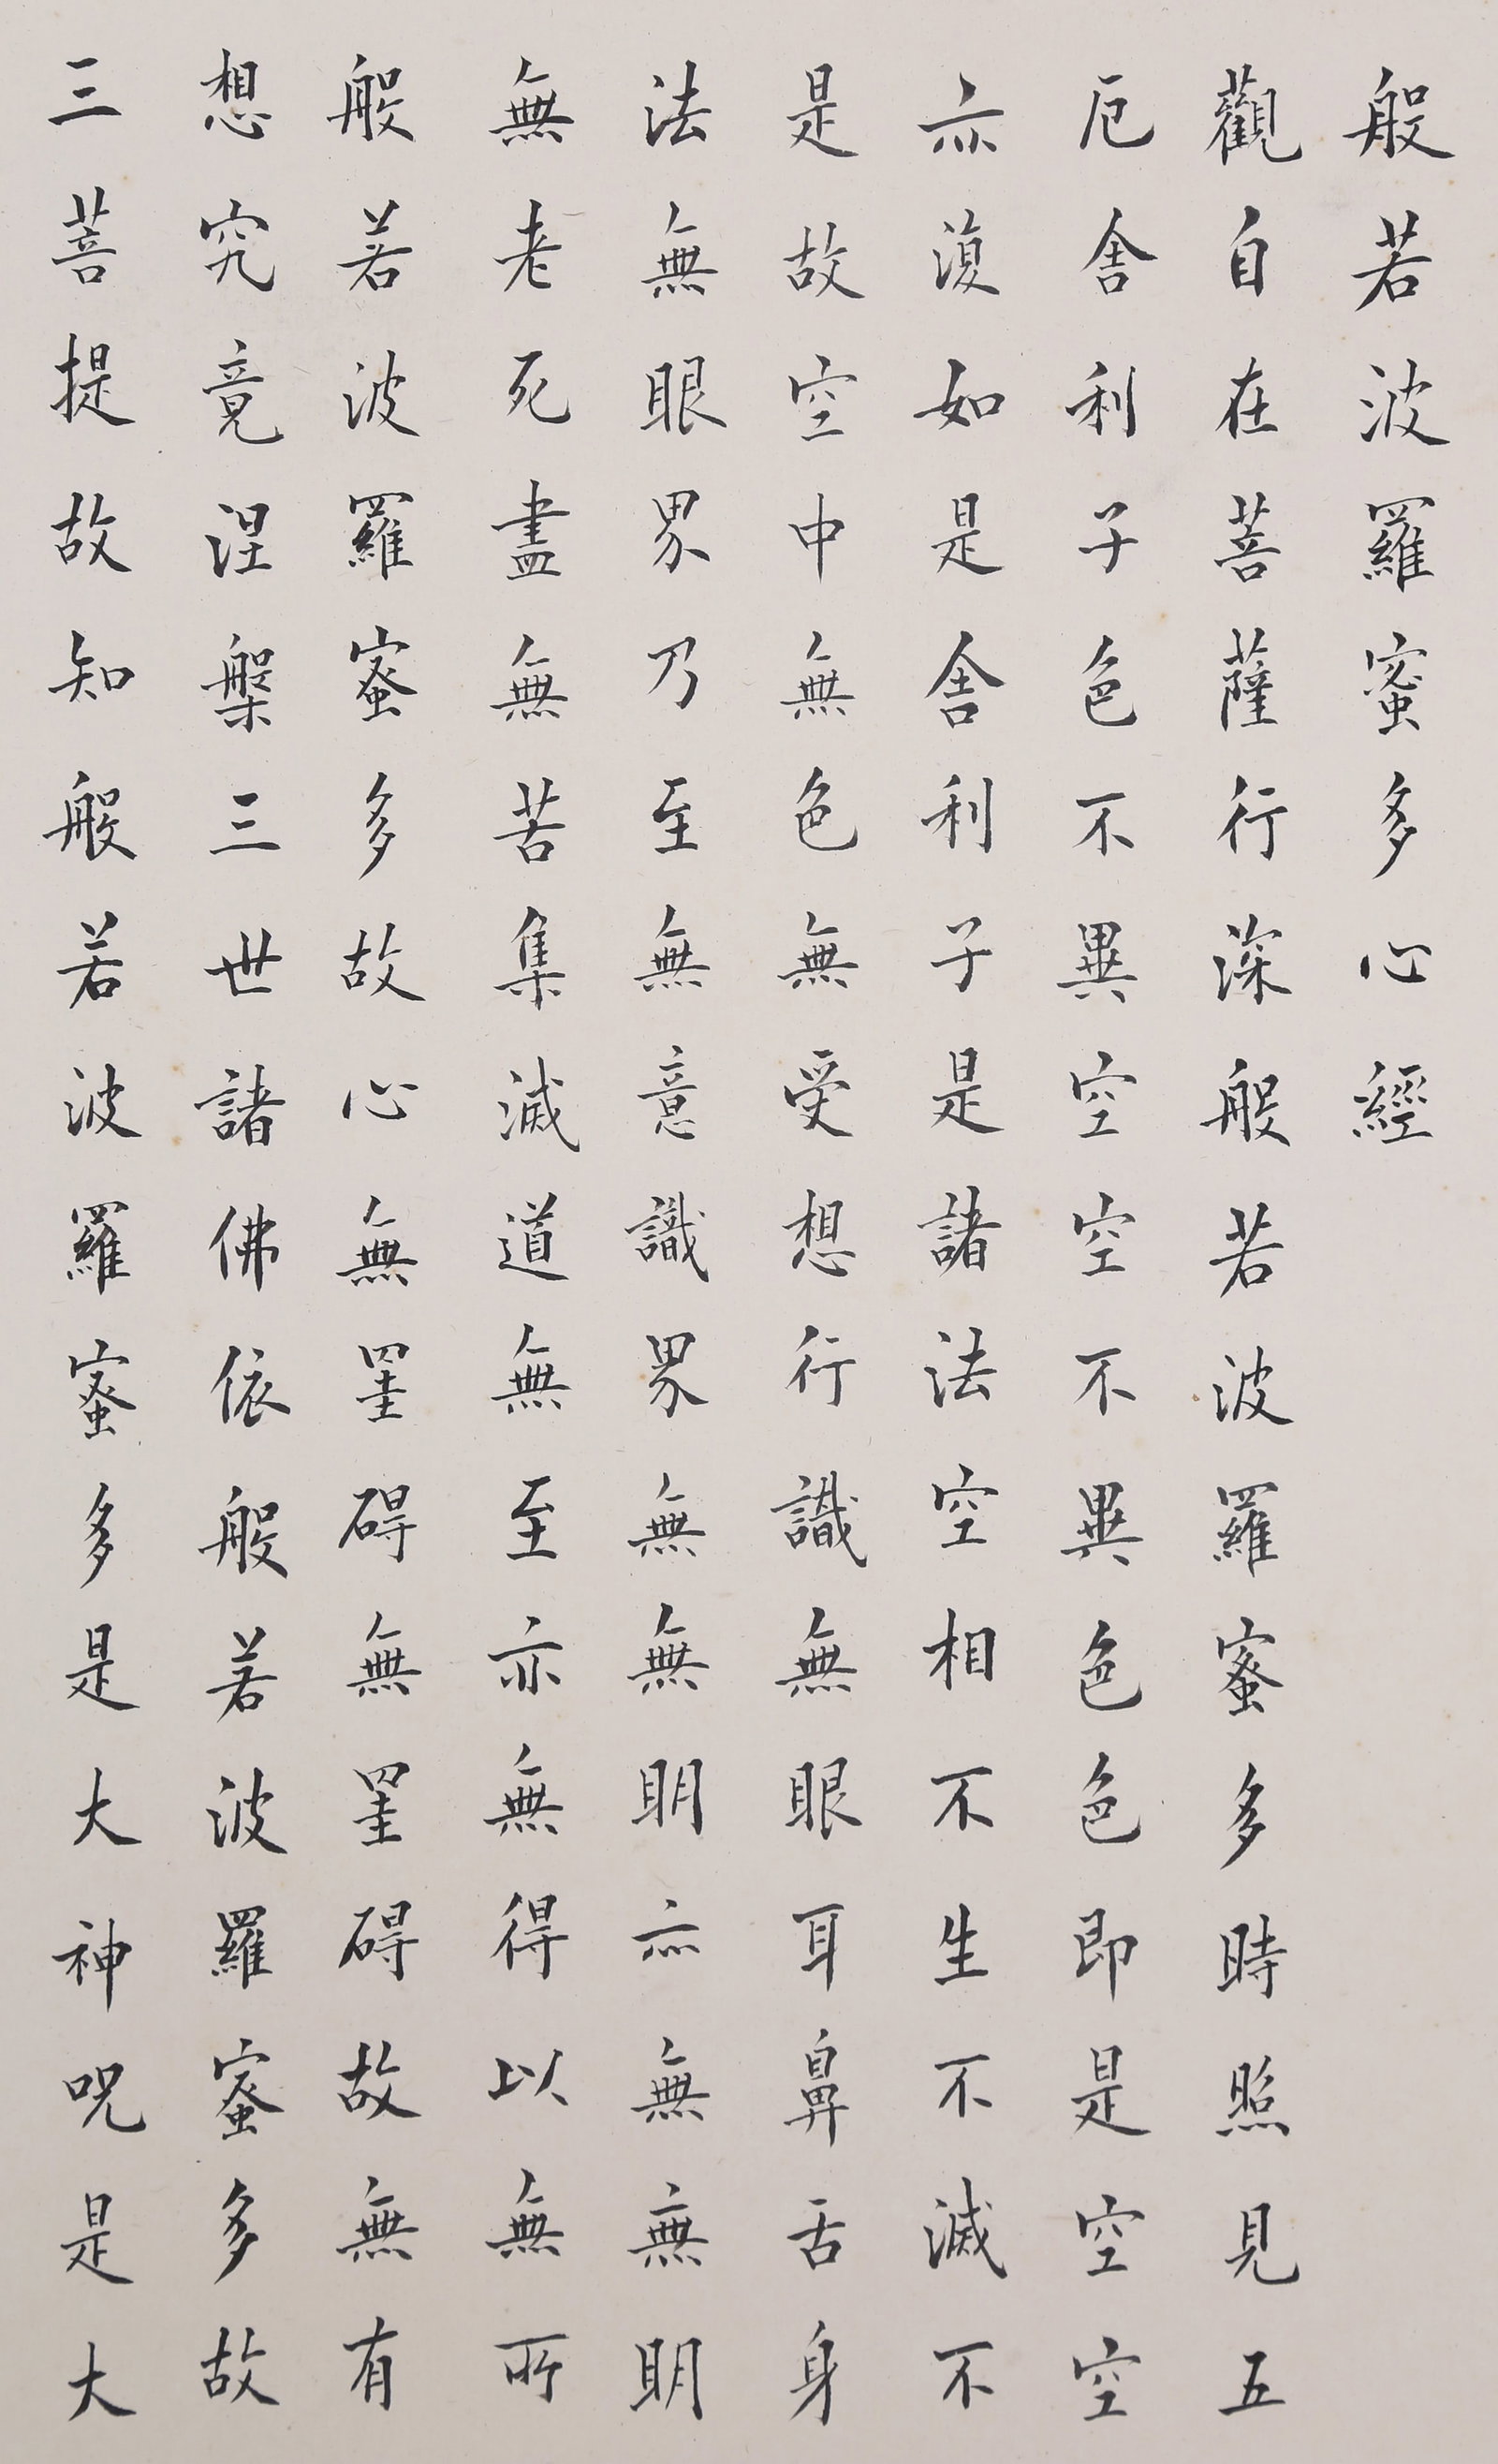 般若波羅蜜多心經
觀自在菩薩行深般若波羅蜜多時照見五
厄舍利子色不異空空不異色色即是空空
亦復如是舍利子是諸法空相不生不滅不
是故空中無色無受想行識無眼耳鼻舌身
法無眼界乃至無意識界無無明亦無無明
無老死盡無苦集滅道無至亦無得以無所
般若波羅蜜多故心無罣碍無罣碍故無有
想究竟涅槃三世諸佛依般若波羅蜜多故
三菩提故知般若波羅蜜多是大神呪是大